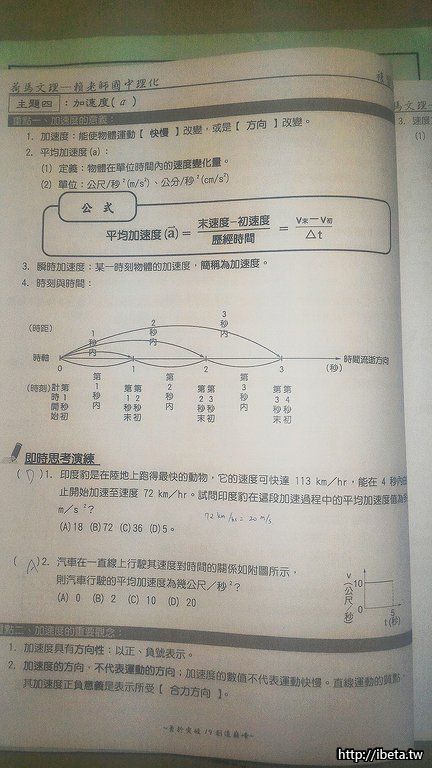 荷馬文理—賴老師國中理化
主題四：加速度(a)
重點一、加速度的意義：
1. 加速度：能使物體運動【快慢】改變，或是【方向】改變。
2. 平均加速度(a)：
(1) 定義：物體在單位時間內的速度變化量。
(2) 單位：公尺/秒²(m/s²)、公分/秒²(cm/s²)
公式
平均加速度(a̅)= 末速度-初速度 / 歷經時間 = V末-V初 / △t
3. 瞬時加速度：某一時刻物體的加速度，簡稱為加速度。
4. 時刻與時間：
(時距) 1秒內 2秒內 3秒內
時軸 0 1 2 3 (秒) 時間流逝方向
(時刻) 計時開始 第1秒初 第1秒內 第1秒末 第2秒初 第2秒內 第2秒末 第3秒初 第3秒內 第3秒末 第4秒初
即時思考演練
(D)1. 印度豹是在陸地上跑得最快的動物，它的速度可快達 113 km/hr，能在 4 秒內由
止開始加速至速度 72 km/hr。試問印度豹在這段加速過程中的平均加速度值為
m/s²?
72 km/hr = 20 m/s
(A)18 (B)72 (C)36 (D)5。
(A)2. 汽車在一直線上行駛其速度對時間的關係如附圖所示，
則汽車行駛的平均加速度為幾公尺/秒²?
(A) 0 (B) 2 (C) 10 (D) 20
v(公尺/秒) 10 0 5 t(秒)
重點二、加速度的重要觀念：
1. 加速度具有方向性：以正、負號表示。
2. 加速度的方向，不代表運動的方向；加速度的數值不代表運動快慢。直線運動的質點，
其加速度正負意義是表示所受【合力方向】。
http://ibeta.tw